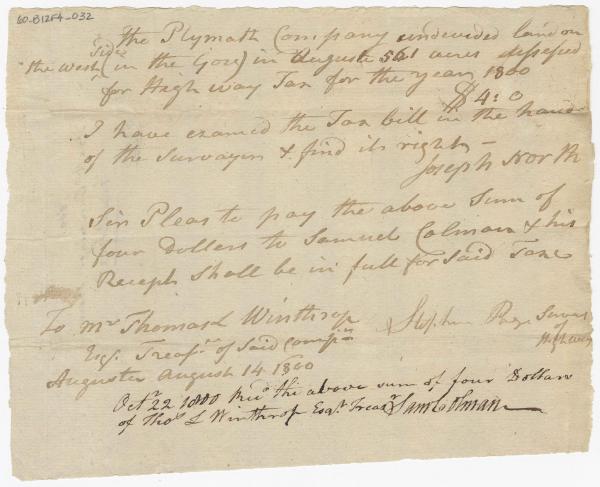 60-B12F4-032
The Plymoth Company undevided land on
the West Side (in the Gore) in Auguste 561 acres assessed
for High way Tax for the year 1800
$4:0
I have examed the Tax bill in the hands
of the Surveyer & find its right —
Joseph North
Sir Pleas to pay the above Sum of
four Dollers to Samuel Colman & his
Receph Shall be in full for Said Taxe
To Mr Thomas L Winthrop
Esqr. Treasr of Said Compin
Stephen Page Surver
of
Highways
Auguster August 14 1800
Octr 22 1800 Recd the above sum of four Dollars
of Thos L Winthrop Esqr Treasr Saml Colman